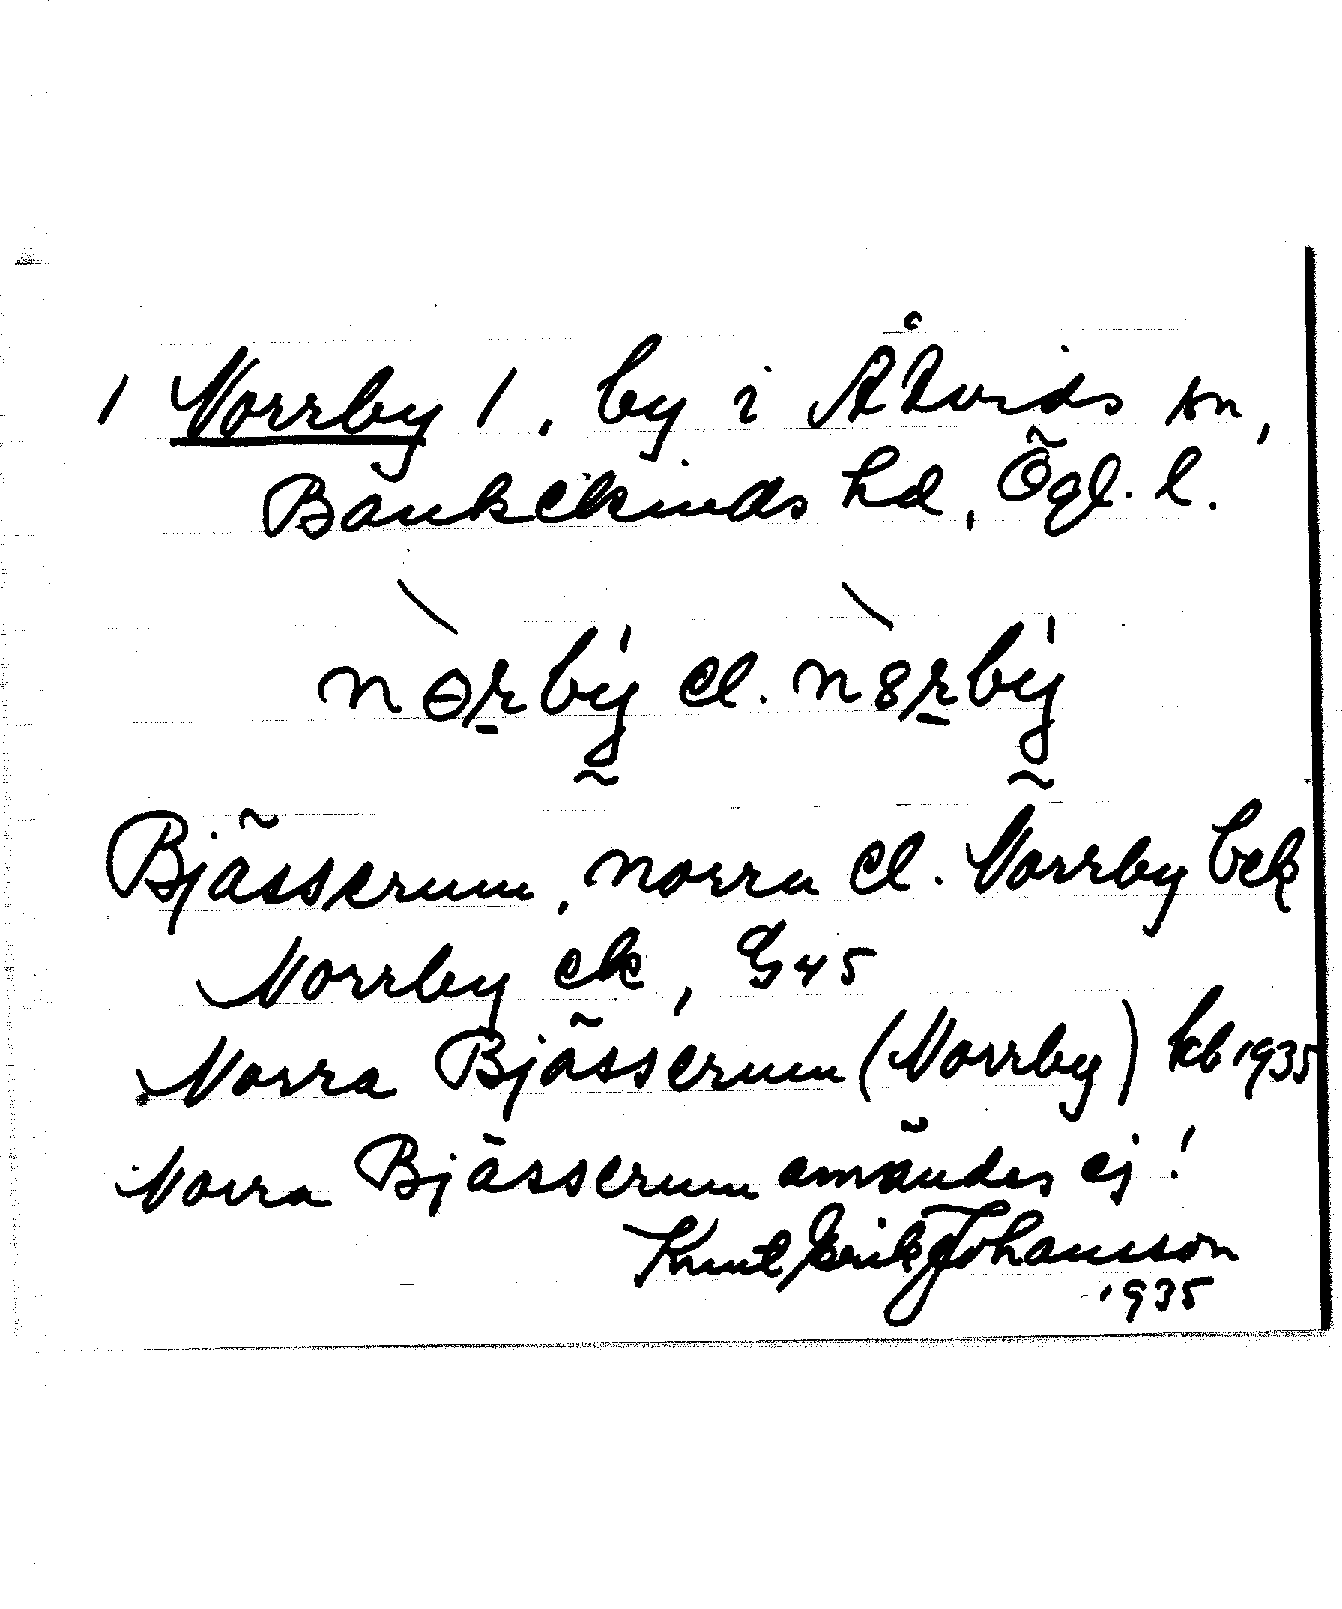 / Norrby /, by i Åtvids sn,
Bankekinds hd, Ögl. l.
nɵrby el. n8rby
Bjässerum, norra el. Norrby bek
Norrby ek, G45
Norra Bjässerum (Norrby) kb 1935
Norra Bjässerum användes ej!
Knut Erik Johansson
1935